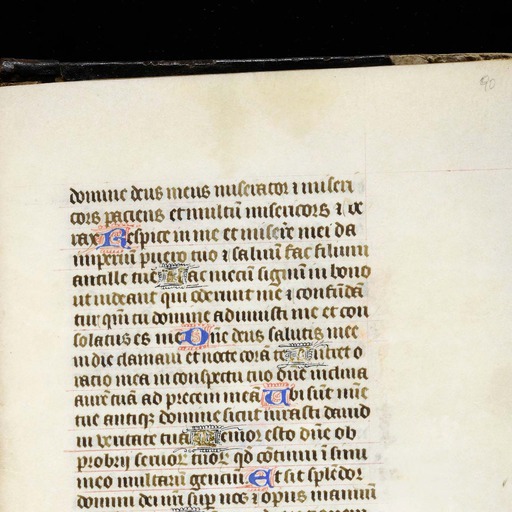 90
domine deus meus miserator ⁊ miseri
cors paciens et multū misericors ⁊ ve
rax Respice in me et misere mei da
imperiū puero tuo ⁊ saluū fac filium
ancille tue Fac mecū signū in bono
ut videant qui oderunt me ⁊ confūdā
tur qm̄ tu domine adiuuisti me et con
solatus es me Dn̄e deus salutis mee
in die clamaui et nocte corā te Intret o
ratio mea in conspectu tuo dn̄e inclina
aurē tuā ad precem meā Ubi sūt mīe
tue antiq̄ domine sicut iurasti dauid
in veritate tuā Memor esto dn̄e ob
probrij seruor tuor qd̄ cōtinui ī sinu
meo multarū genciū Et sit splēdor
domini dei nr̄i sup nos ⁊ opus manuū